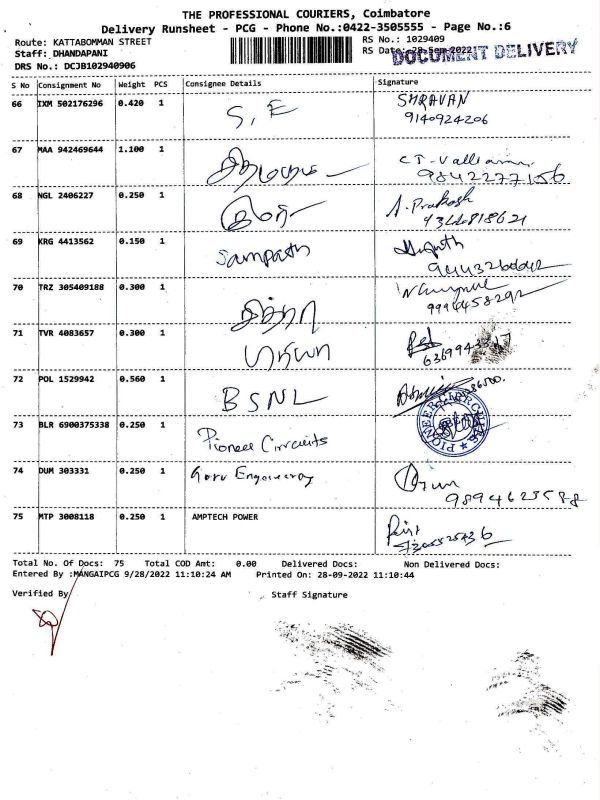 THE PROFESSIONAL COURIERS, Coimbatore
Delivery Runsheet - PCG - Phone No.:0422-3505555 - Page No.:6
Route: KATTABOMMAN STREET RS No.: 1029409
Staff: DHANDAPANI RS Date: 28-Sep-2022
DOCUMENT DELIVERY
DRS No.: DCJB102940906
S No Consignment No Weight PCS Consignee Details Signature
66 IXM 502176296 0.420 1 S, E SHRAVAN
9140924206
67 MAA 942469644 1.100 1
9842277156
68 NGL 2406227 0.250 1 A. Prakash
69 KRG 4413562 0.150 1 Sampath
70 TRZ 305409188 0.300 1 சித்ரா
71 TVR 4083657 0.300 1 பாரியா
72 POL 1529942 0.560 1 BSNL
73 BLR 6900375338 0.250 1 Pioneer Circuits
PIONEER CIRCUITS
74 DUM 303331 0.250 1 Guru Engineering Arun
75 MTP 3008118 0.250 1 AMPTECH POWER
Total No. Of Docs: 75 Total COD Amt: 0.00 Delivered Docs: Non Delivered Docs:
Entered By :MANGAIPCG 9/28/2022 11:10:24 AM Printed On: 28-09-2022 11:10:44
Verified By Staff Signature